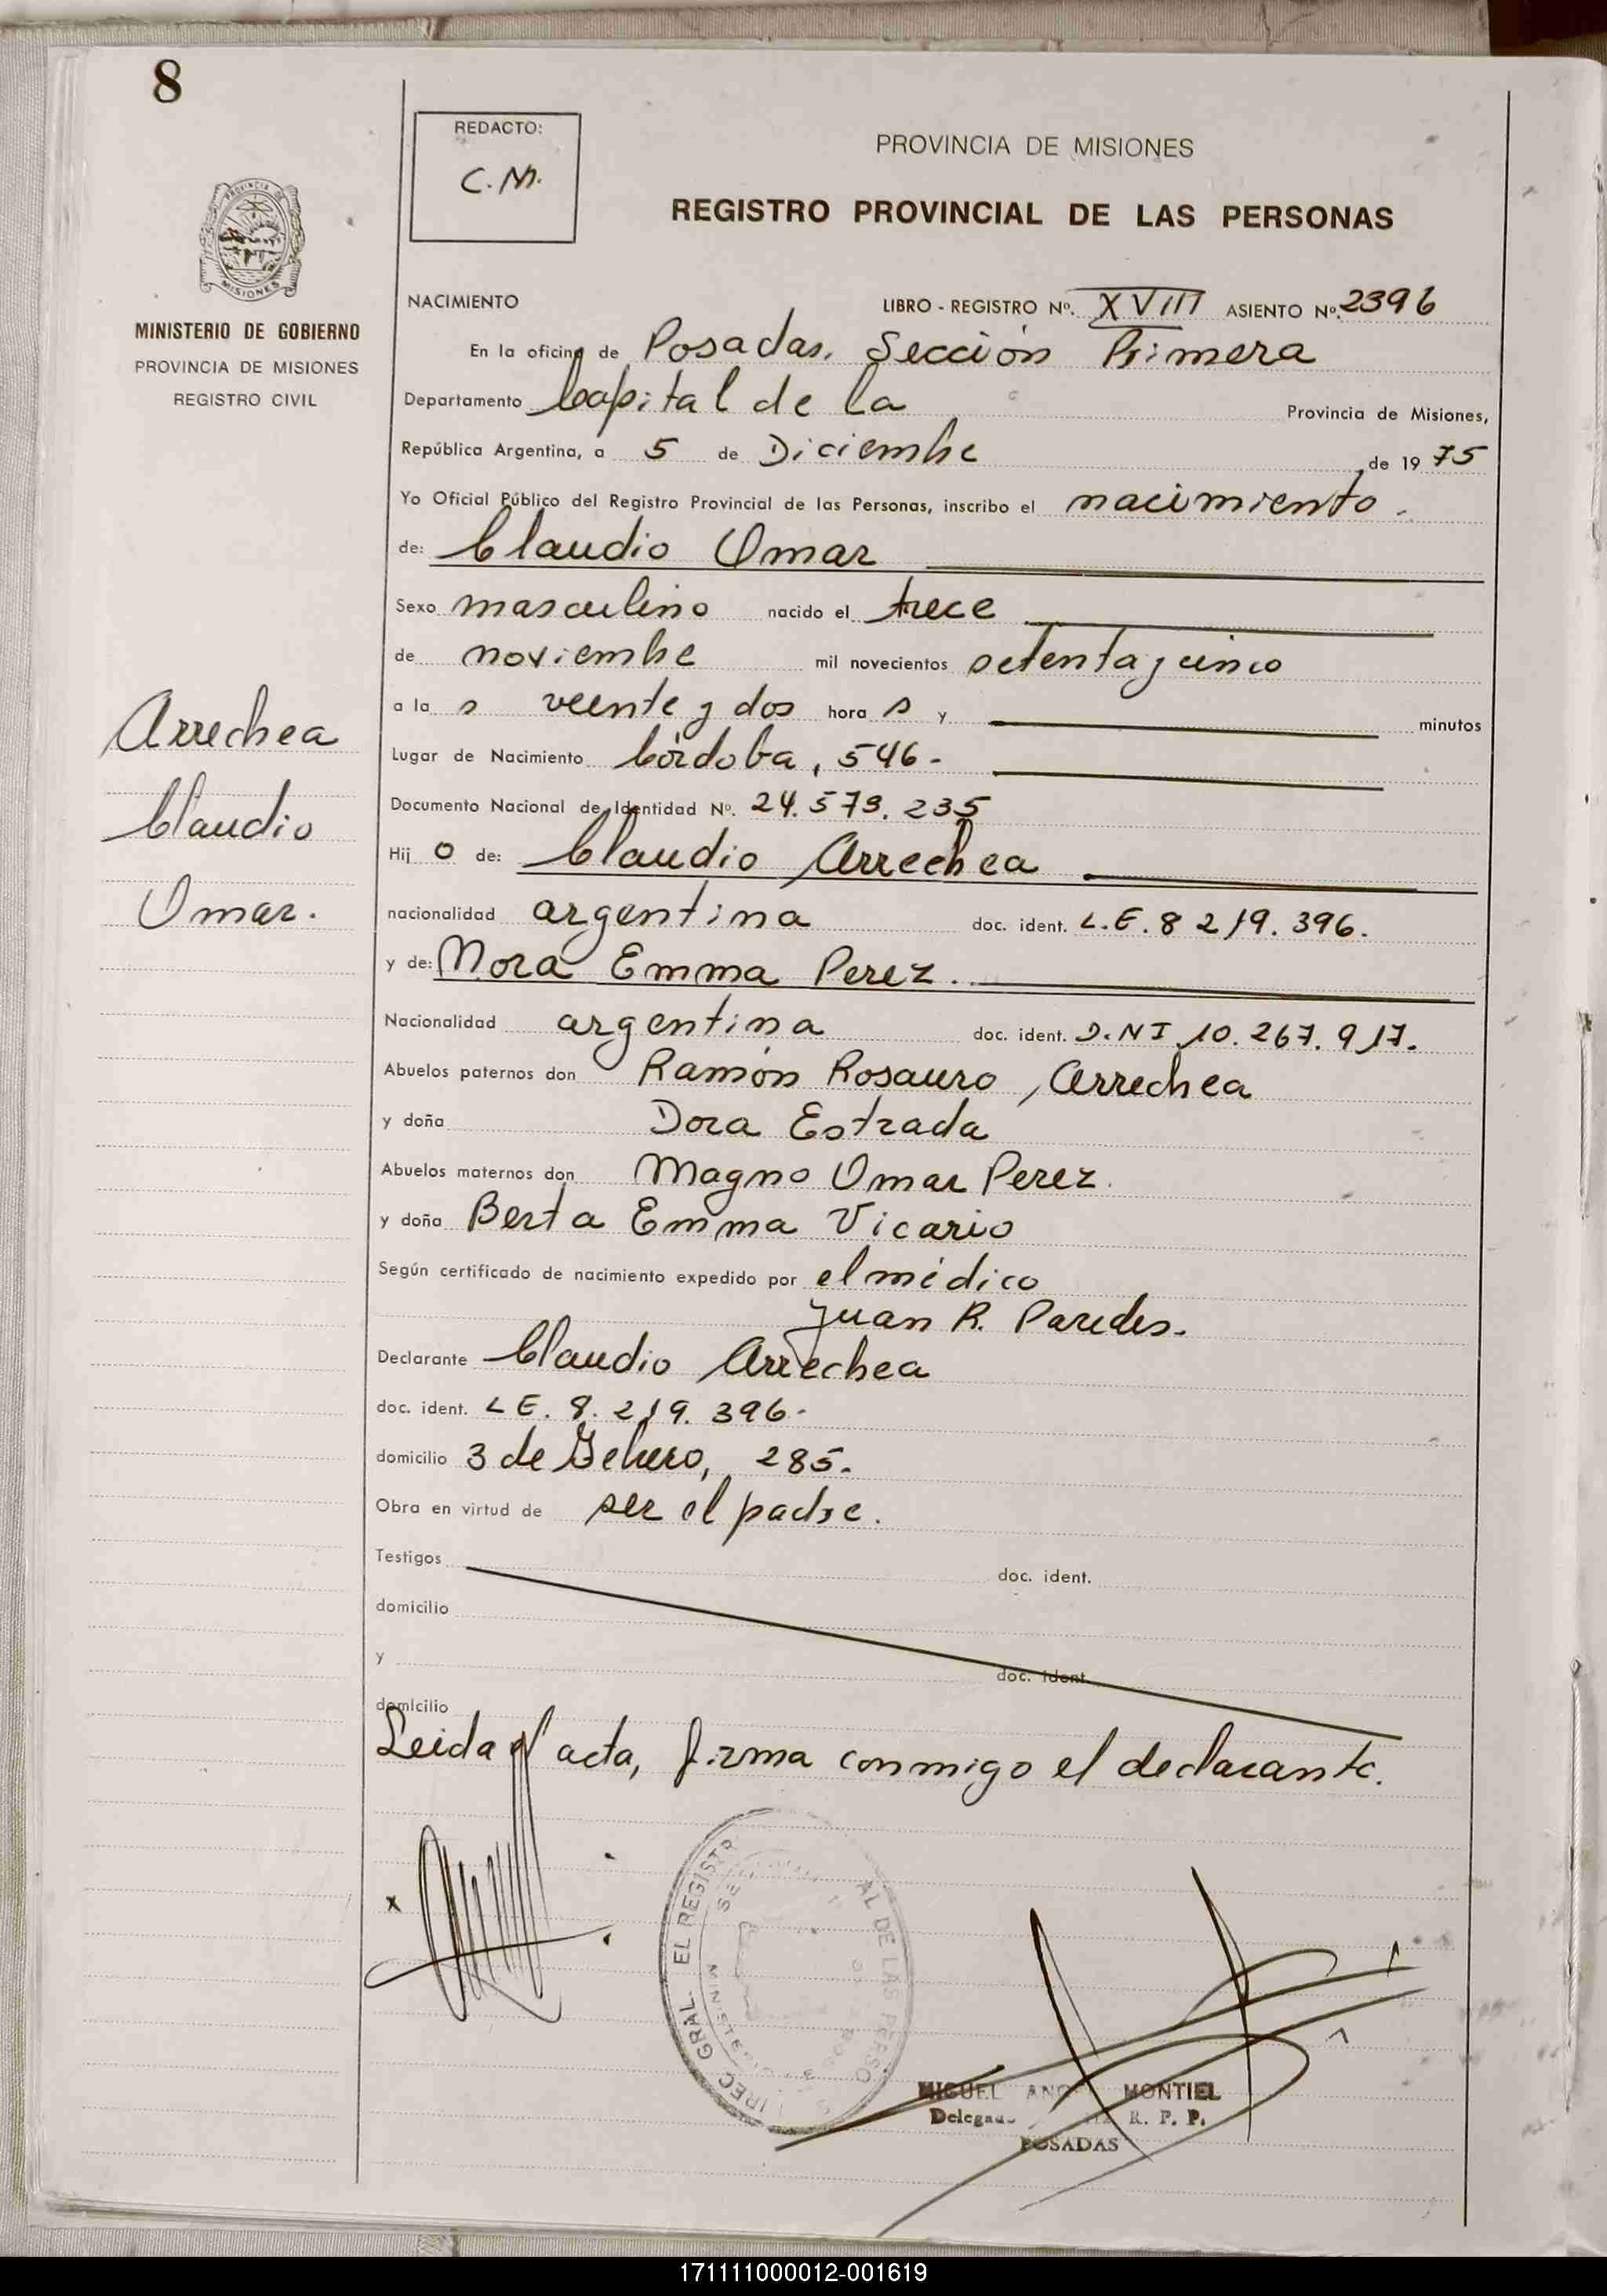 8
REDACTO:
C.M.
PROVINCIA DE MISIONES
REGISTRO PROVINCIAL DE LAS PERSONAS
MISIONES
MINISTERIO DE GOBIERNO
PROVINCIA DE MISIONES
REGISTRO CIVIL
Arrechea
Claudio
Omar.
NACIMIENTO LIBRO - REGISTRO Nº. XVIII ASIENTO Nº. 2396
En la oficina de Posadas. Sección Primera
Departamento Capital de la Provincia de Misiones,
República Argentina, a 5 de Diciembre de 19 75
Yo Oficial Público del Registro Provincial de las Personas, inscribo el nacimiento.
de: Claudio Omar
Sexo masculino nacido el trece
de noviembre mil novecientos setenta y cinco
a la s veinte y dos hora s y minutos
Lugar de Nacimiento Córdoba, 546-
Documento Nacional de Identidad Nº. 24.573.235
Hij o de: Claudio Arrechea
nacionalidad argentina doc. ident. L.E. 8 219.396.
y de: Nora Emma Perez.
Nacionalidad argentina doc. ident. D.NI 10.267.917.
Abuelos paternos don Ramón Rosauro Arrechea
y doña Dora Estrada
Abuelos maternos don Magno Omar Perez.
y doña Berta Emma Vicario
Según certificado de nacimiento expedido por el médico
Juan R. Paredes.
Declarante Claudio Arrechea
doc. ident. LE. 8.219.396-
domicilio 3 de Febrero, 285.
Obra en virtud de ser el padre.
Testigos doc. ident.
domicilio
y doc. ident.
domicilio
Leida el acta, firma conmigo el declarante.
x
MIGUEL ANGEL MONTIEL
R. P. P.
POSADAS
171111000012-001619